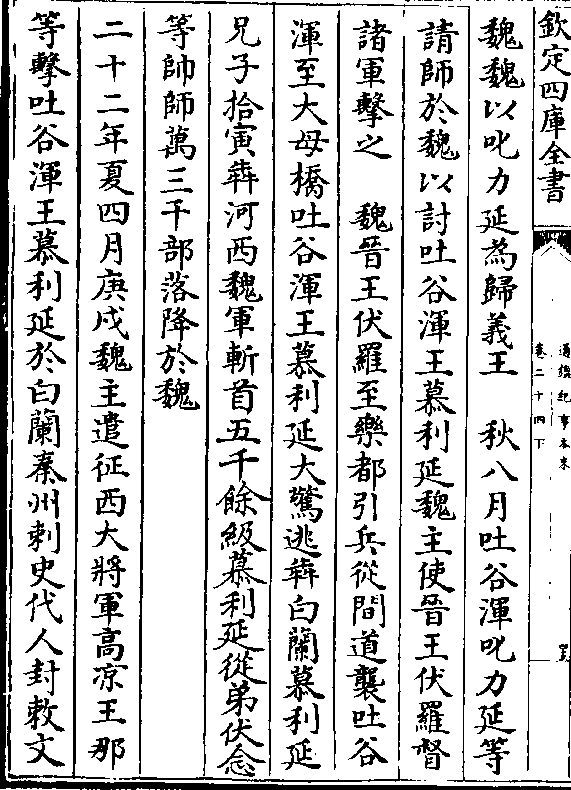 欽定四庫全書
通鑑紀事本末
卷二十四下
魏魏以叱力延為歸義王　秋八月吐谷渾叱力延等
請師於魏以討吐谷渾王慕利延魏主使晉王伏羅督
諸軍擊之　魏晉王伏羅至樂都引兵從間道襲吐谷
渾至大母橋吐谷渾王慕利延大驚逃犇白蘭慕利延
兄子拾寅犇河西魏軍斬首五千餘級慕利延從弟伏念
等帥師萬三千部落降於魏
二十二年夏四月庚戌魏主遣征西大將軍高凉王那
等擊吐谷渾王慕利延於白蘭秦州刺史代人封敕文